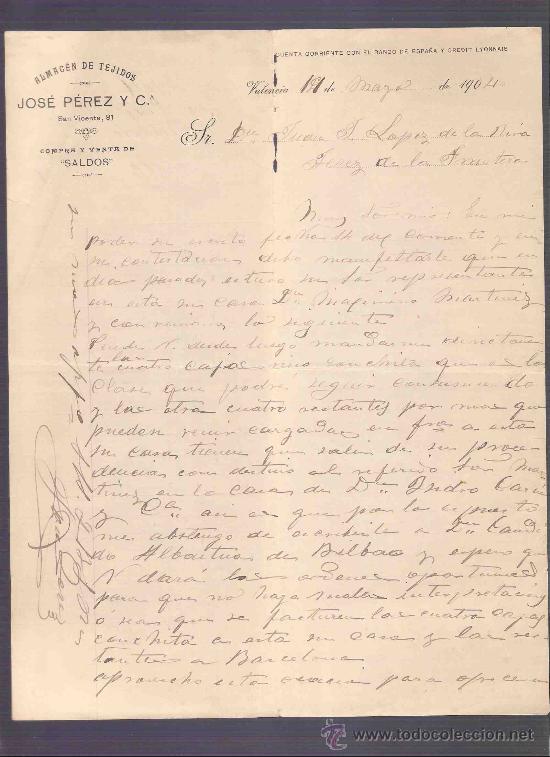 CUENTA CORRIENTE CON EL BANCO DE ESPAÑA Y CREDIT LYONNAIS
ALMACÉN DE TEJIDOS
JOSÉ PÉREZ Y C.ª
San Vicente, 81
COMPRA Y VENTA DE
"SALDOS"
Valencia 17 de Mayo de 1904
Sr. Dn. Juan J. Lopez de la
Jerez de la Frontera
Muy Sor mio: En mi
poder su escrito fecha 14 del corriente y en
su contestacion debo manifestarle que en
dias pasados estuvo su Sor representante
en esta su casa Dn Maximino Martinez
y convenimos lo siguiente
Puede V. desde luego mandarme
cuatro cajas vino conchita que es la
Clase que podré seguir consumiendo
y las otras cuatro restantes por mas que
pueden venir cargadas en fras a esta
su casa tienen que salir de su proce
dencia con destino al referido Sor Mar
tinez en la casa de Dn Isidro
y Ca asi es que por lo expuesto
me abstengo de escribirle a Dn Candi
do de Bilbao y espero que
V. dará las ordenes oportunas
para que no haya mala interpretación
ó sea que se facturen las cuatro cajas
conchita a esta su casa y las res
tantes a Barcelona
aprovecho esta ocasion para ofrecer
www.todocoleccion.net